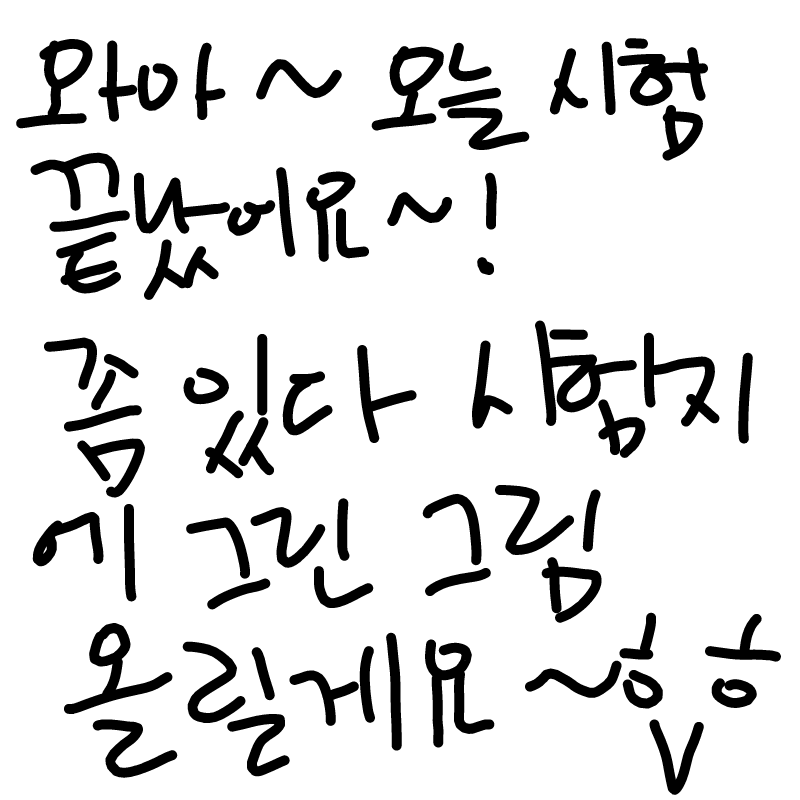 와아~ 오늘 시험
끝났어요~!
좀 있다 시험지
에 그린 그림
올릴게요~ㅎㅎ